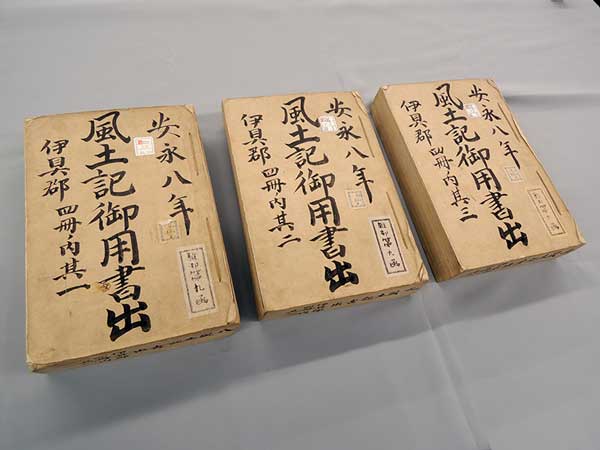 安永八年
風土記御用書出
伊具郡 四冊内其一
安永八年
風土記御用書出
伊具郡 四冊内其二
安永八年
風土記御用書出
伊具郡 四冊内其三